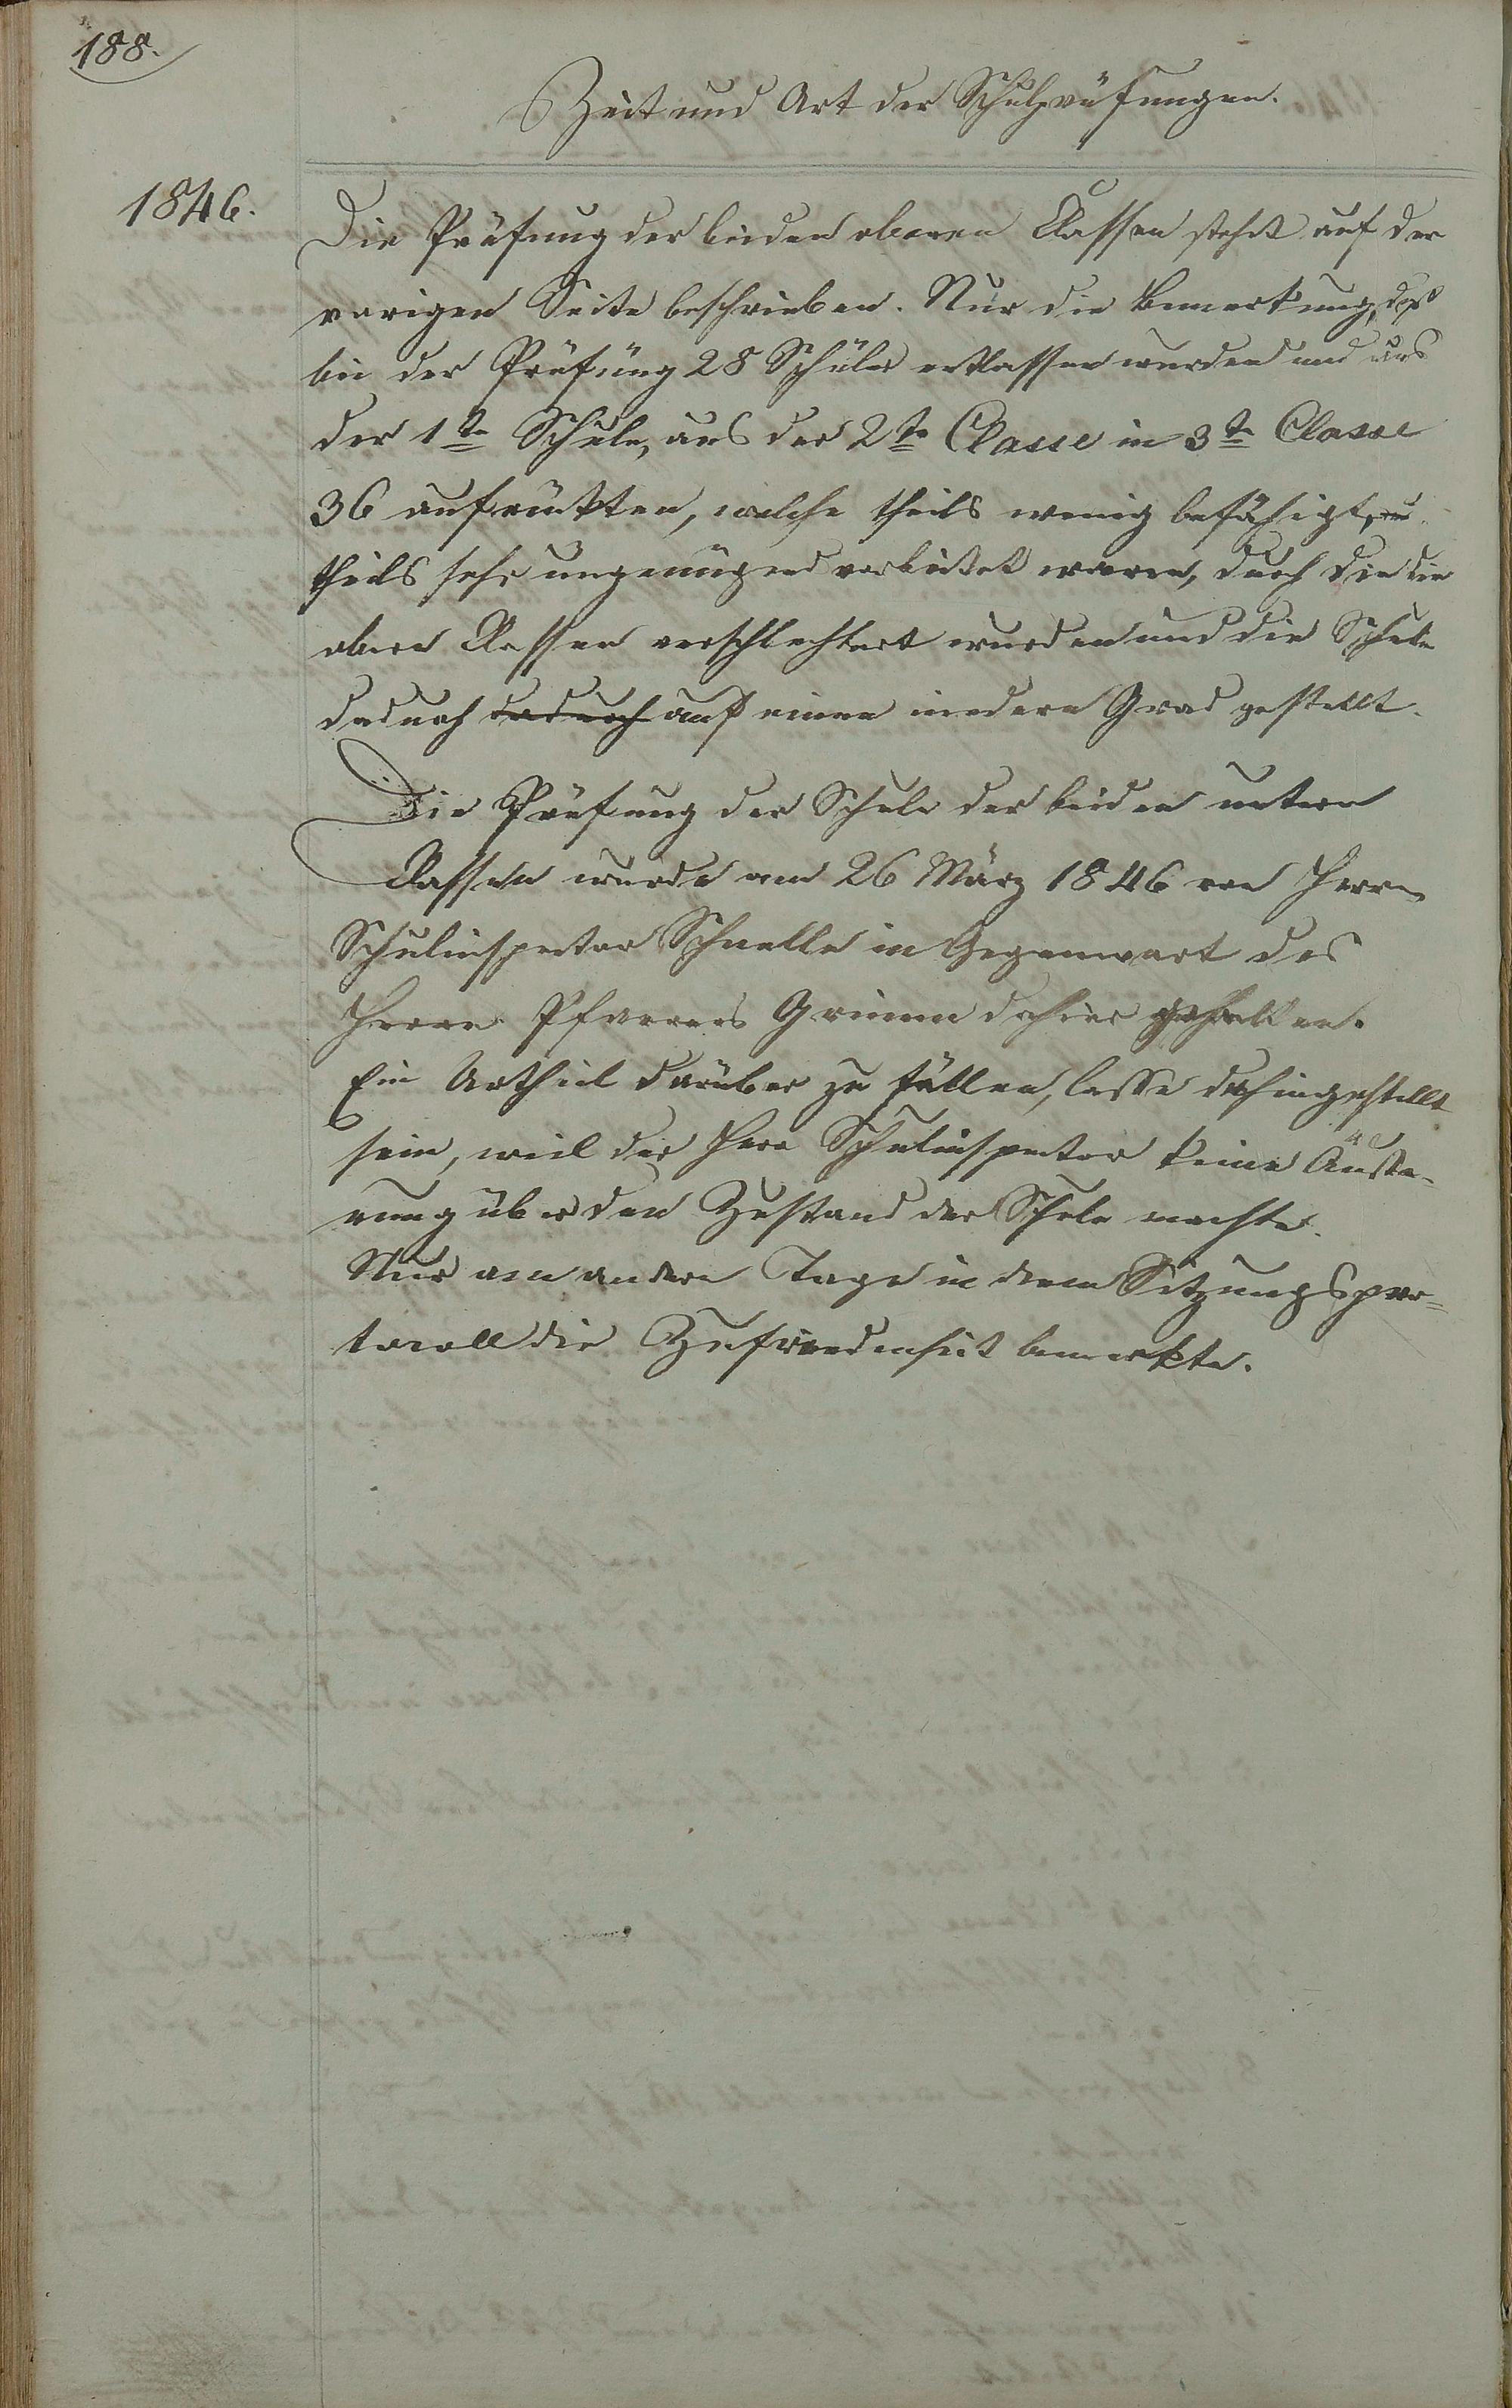 188.
Zeit und Art der Schulprüfungen.
1846.
Die Prüfung der beiden oberen Classen steht auf der
vorigen Seite beschrieben. Nur die Bemerkung, daß
bei der Prüfung 28 Schüler entlassen wurden und aus
der 1te Schule, aus der 2te Classe in 3te Classe
36 aufrückten, welche theils wenig befähigt,
theils sehr ungenügend vorbereitet waren, durch die die
obern Classen verschlechtert wurden und die Schule
dadurch dadurch auf einen niedern Grad gestellt.
Die Prüfung der Schule der beiden untern
Classen wurde am 26 März 1846 von Herrn
Schulinspector Schnelle in Gegenwart des
Herrn Pfarrers Grimm dahier gehalten.
Ein Urtheil darüber zu fällen, lasse dahingestellt
sein, weil der Herr Schulinspector keine Äuße-
rung über den Zustand der Schule machte.
Nur am andern Tage in dem Sitzungspro=
tocoll die Zufriedenheit bemerkte.